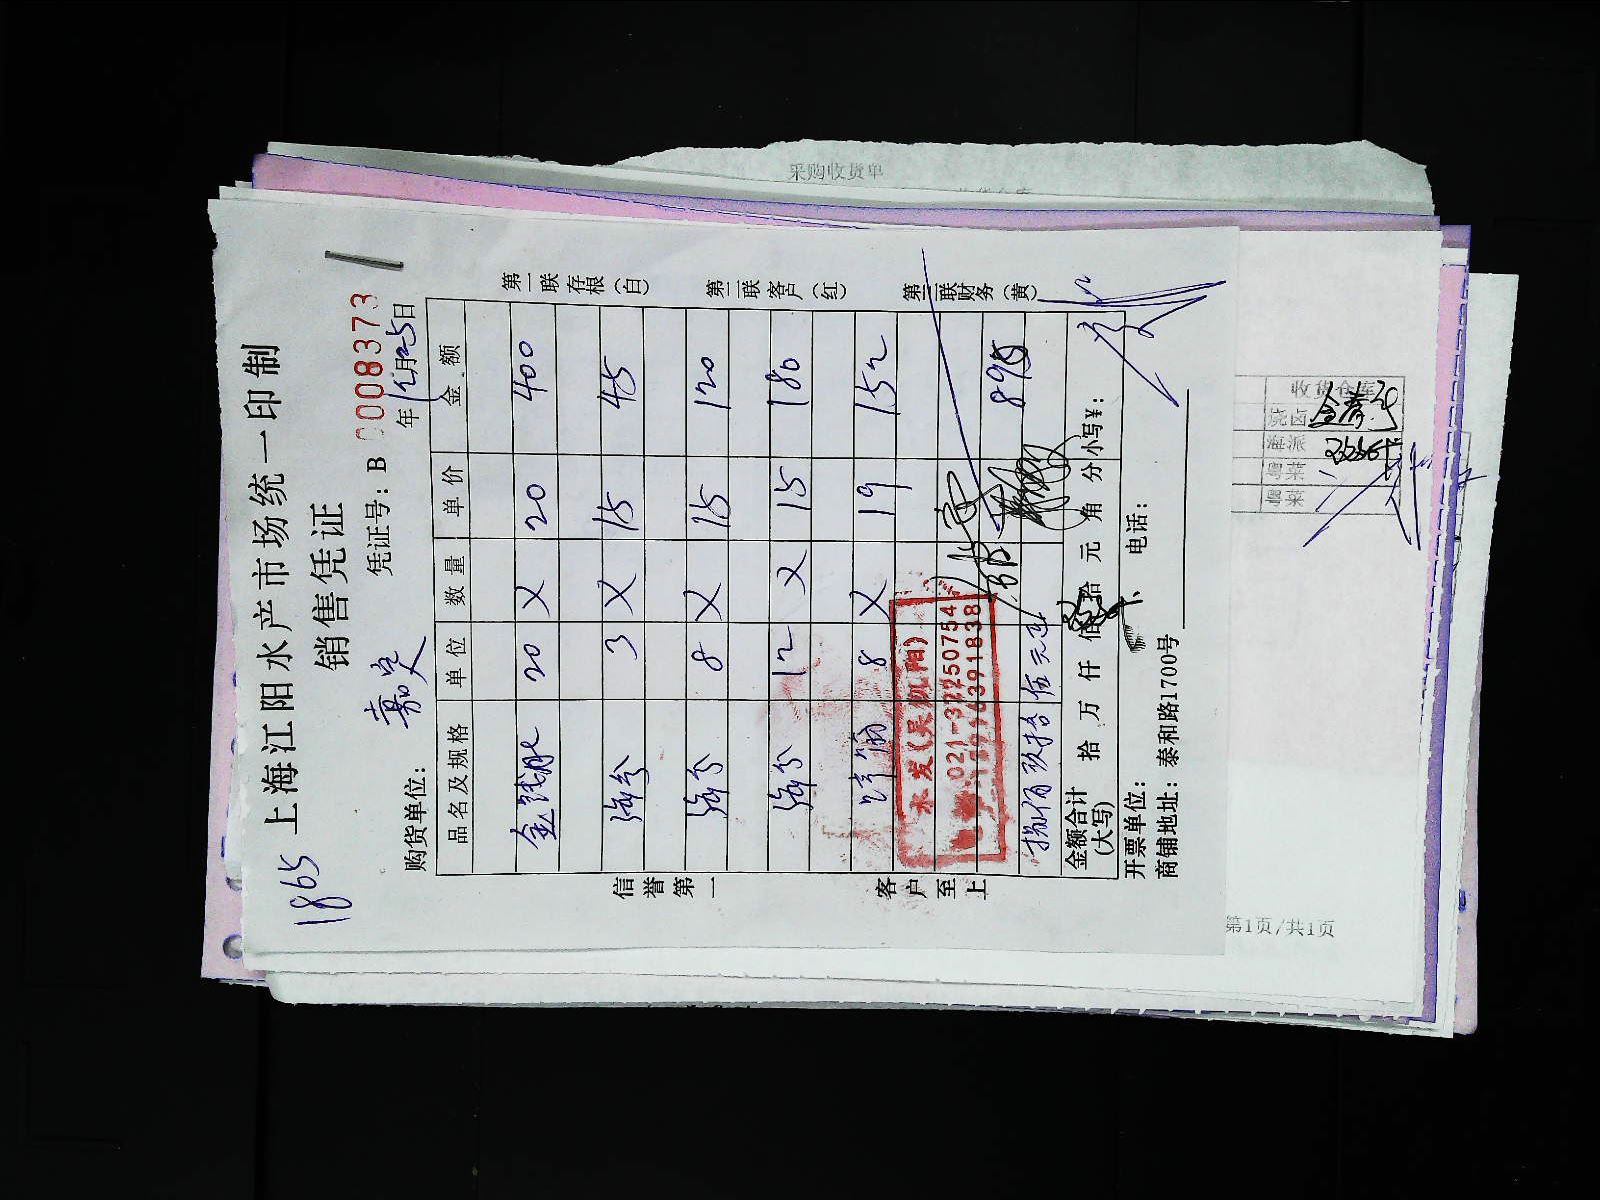 1865
上海江阳水产市场统一印制
销售凭证
凭证号：B 0008373
购货单位： 嘉定 年12月25日
品名及规格 单位 数量 单价 金额
20 × 20 400
3 × 15 45
8 × 15 120
12 × 15 180
8 × 19 152
895
捌佰玖拾伍元正
金额合计
(大写) 拾 万 仟 佰 拾 元 角 分 小写¥：
开票单位： 电话：
商铺地址：泰和路1700号
信誉第一
客户至上
第一联存根（白）
第二联客户（红）
第三联财务（黄）
水发
021-37250754
采购收货单
收货仓库
烧卤
海派
粤菜
粤菜
第1页/共1页